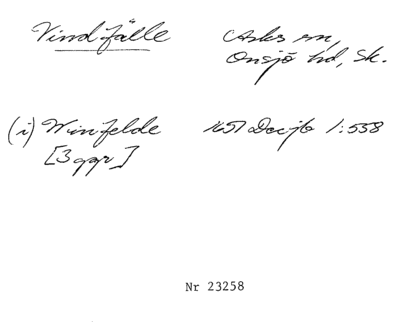 Vindfälle
Asks sn,
Onsjö hd, Sk.
(i) Winfelde 1651 Decjb 1:558
[3 ggr]
Nr 23258